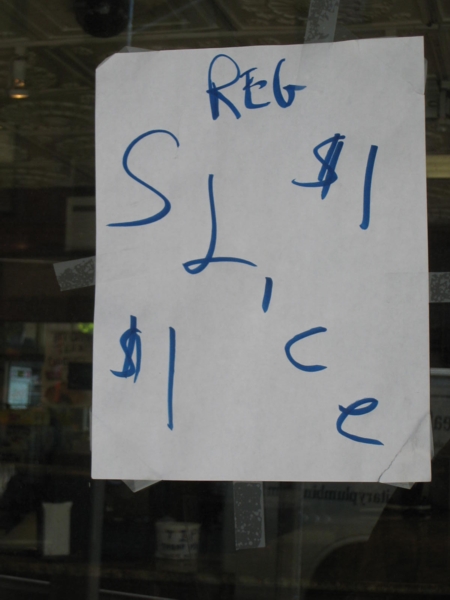 REG
SLice
$1
$1
itaryplumbin